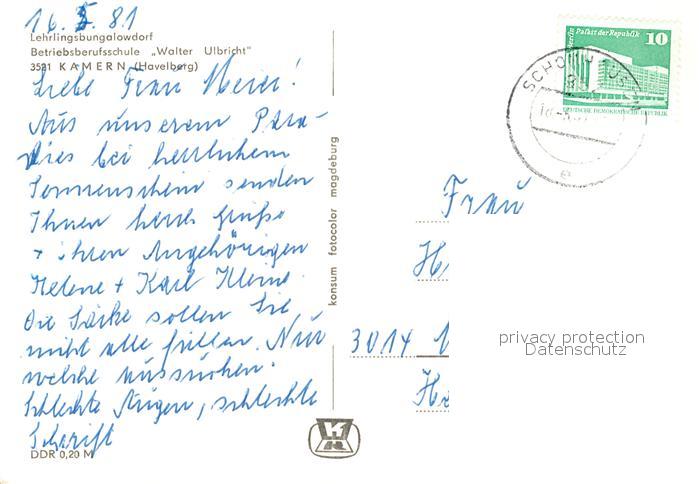 16.5.81
Lehrlingsbungalowdorf
Betriebsberufsschule „Walter Ulbricht"
3521 KAMERN (Havelberg)
Liebe Frau Meier!
Aus unserem Para-
dies bei herrlichem
Sonnenschein senden
Ihnen herzl. Grüße
+ ihren Angehörigen
Helene + Karl Kleine.
Die Säcke sollen Sie
nicht alle füllen. Nur
welche aussuchen.
Schlechte Augen, schlechte
Schrift
DDR 0,20 M
konsum fotocolor magdeburg
Berlin Palast der Republik
10
DEUTSCHE DEMOKRATISCHE REPUBLIK
e
Frau
H
3014
privacy protection
Datenschutz